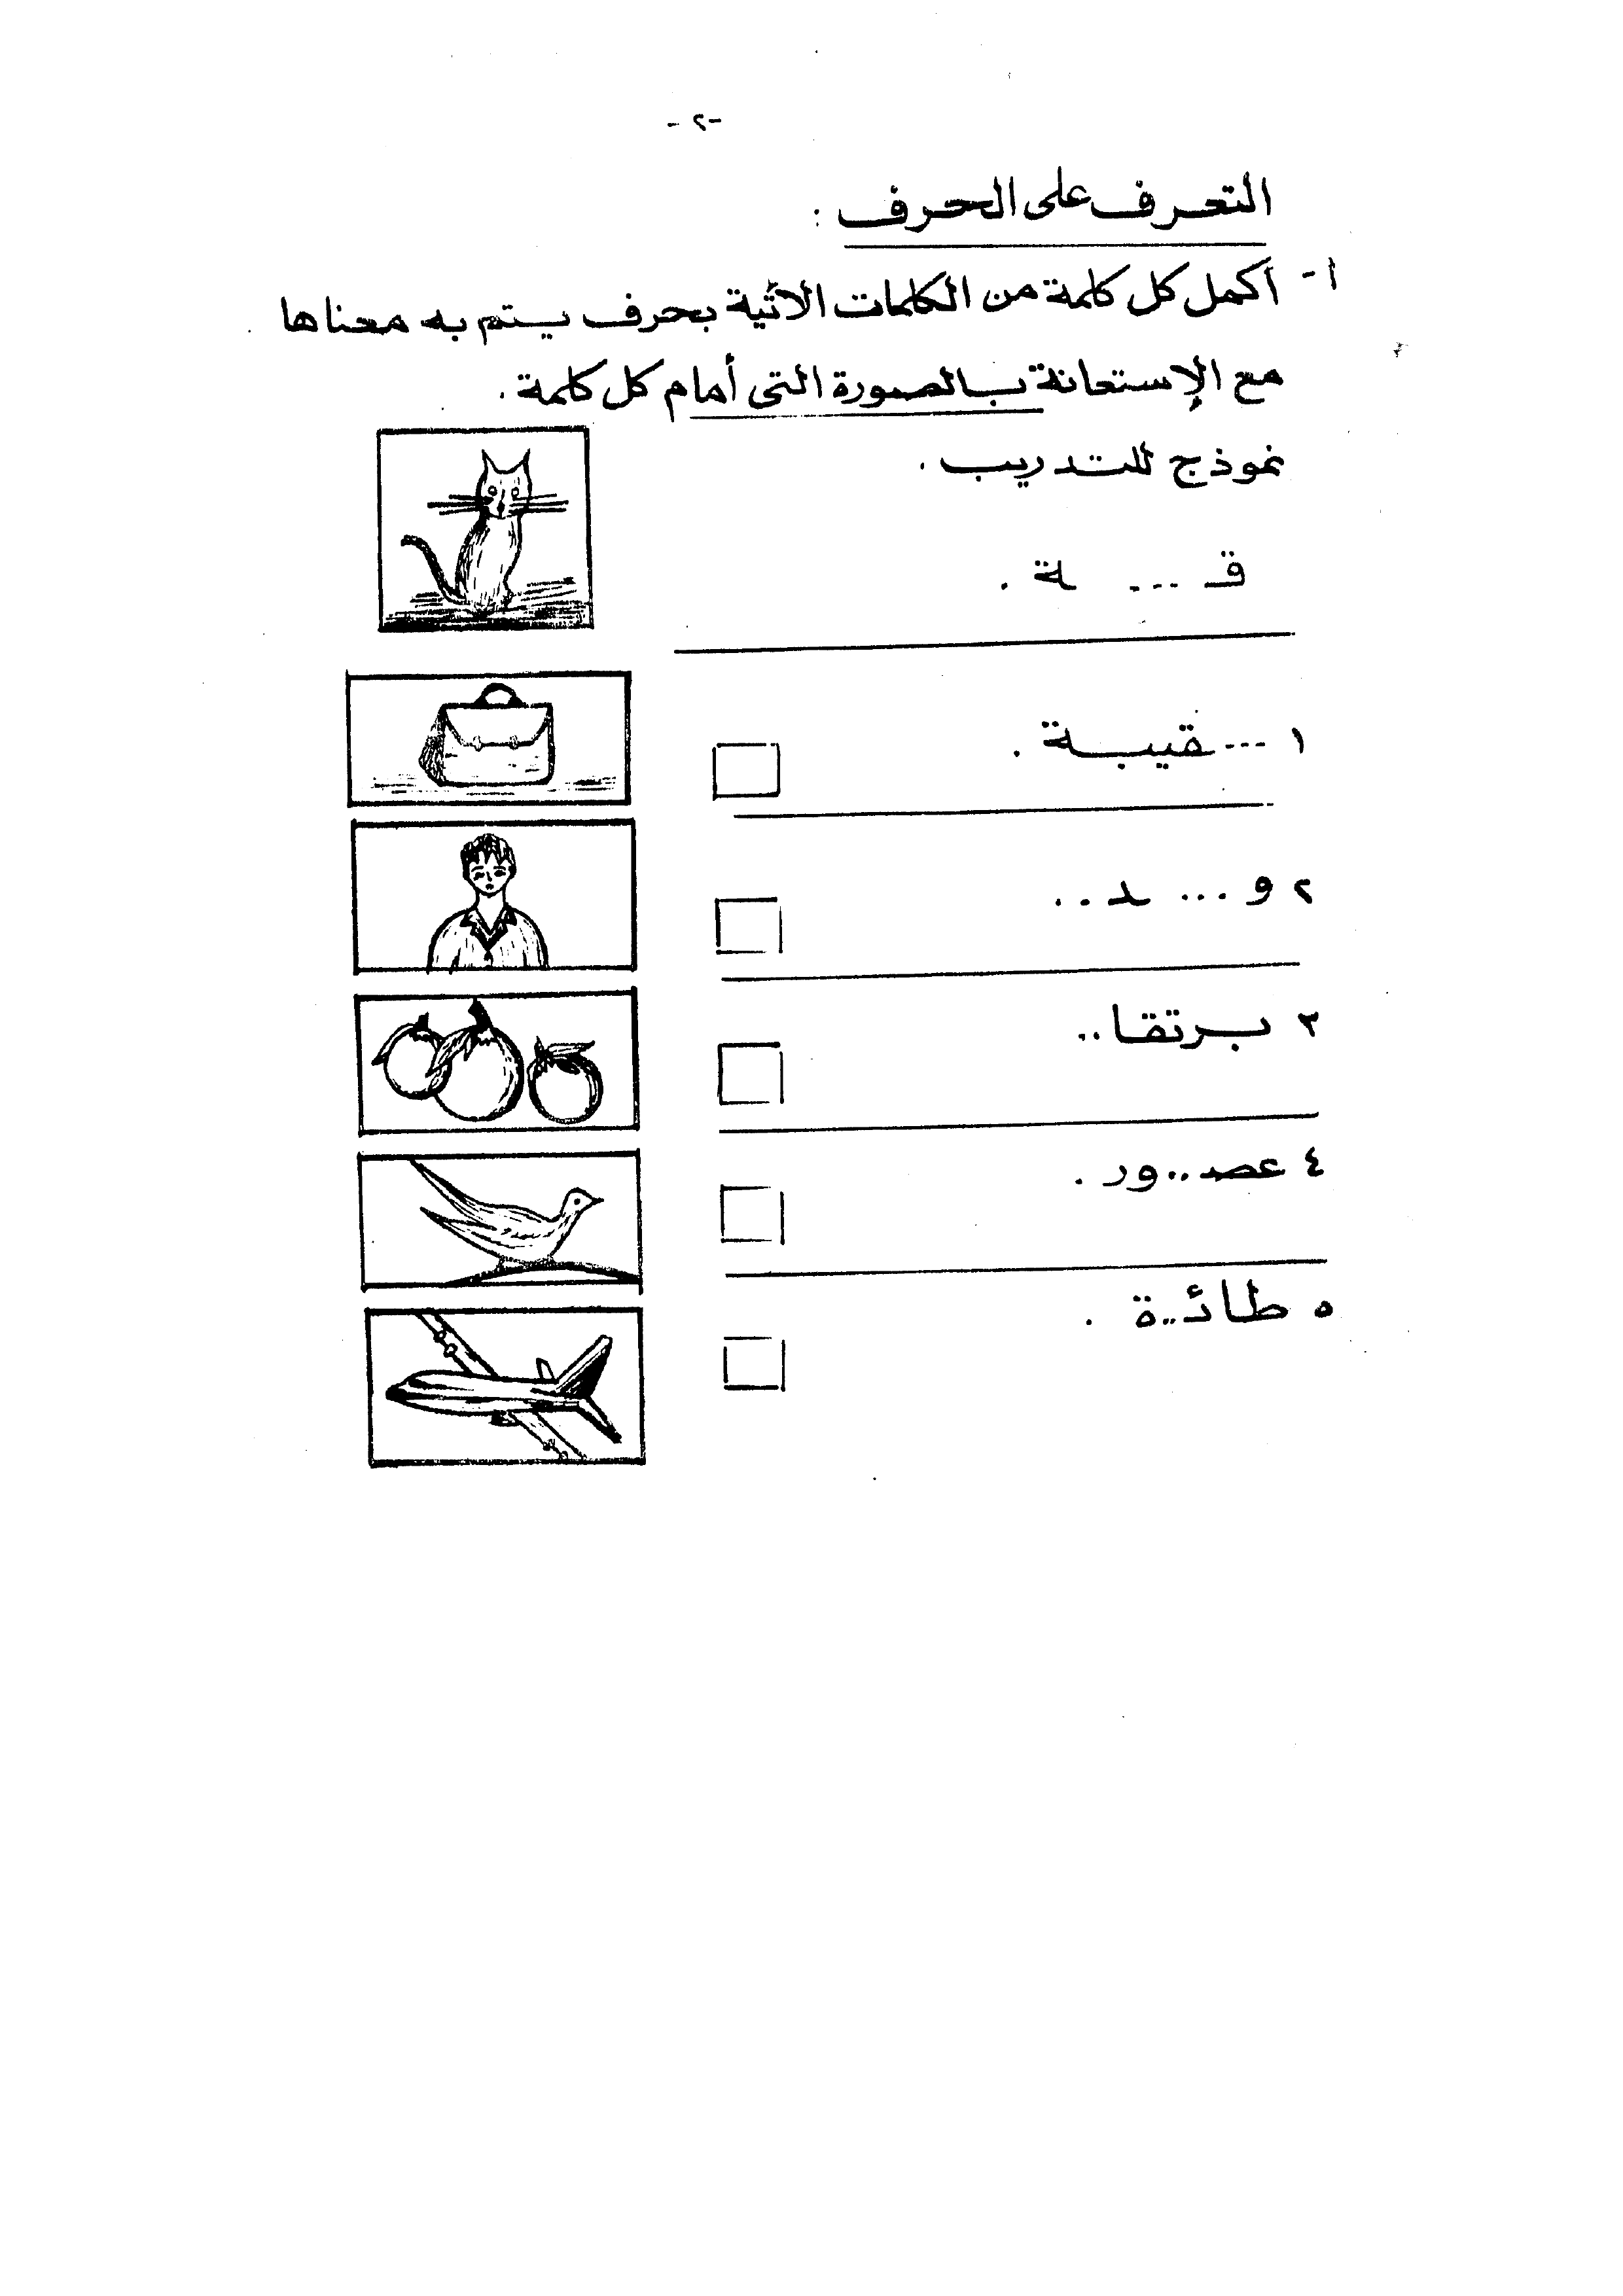 -٢-
التعرف على الحرف :
أ - أكمل كل كلمة من الكلمات الآتية بحرف يتم به معناها
مع الإستعانة بالصورة التى أمام كل كلمة .
نموذج للتدريب .
قـ ... ـة .
١ ... ـقيبة .
٢ و ... ـد ..
٣ برتقا ..
٤ عصـ .. ور .
٥ طائـ .. ة .